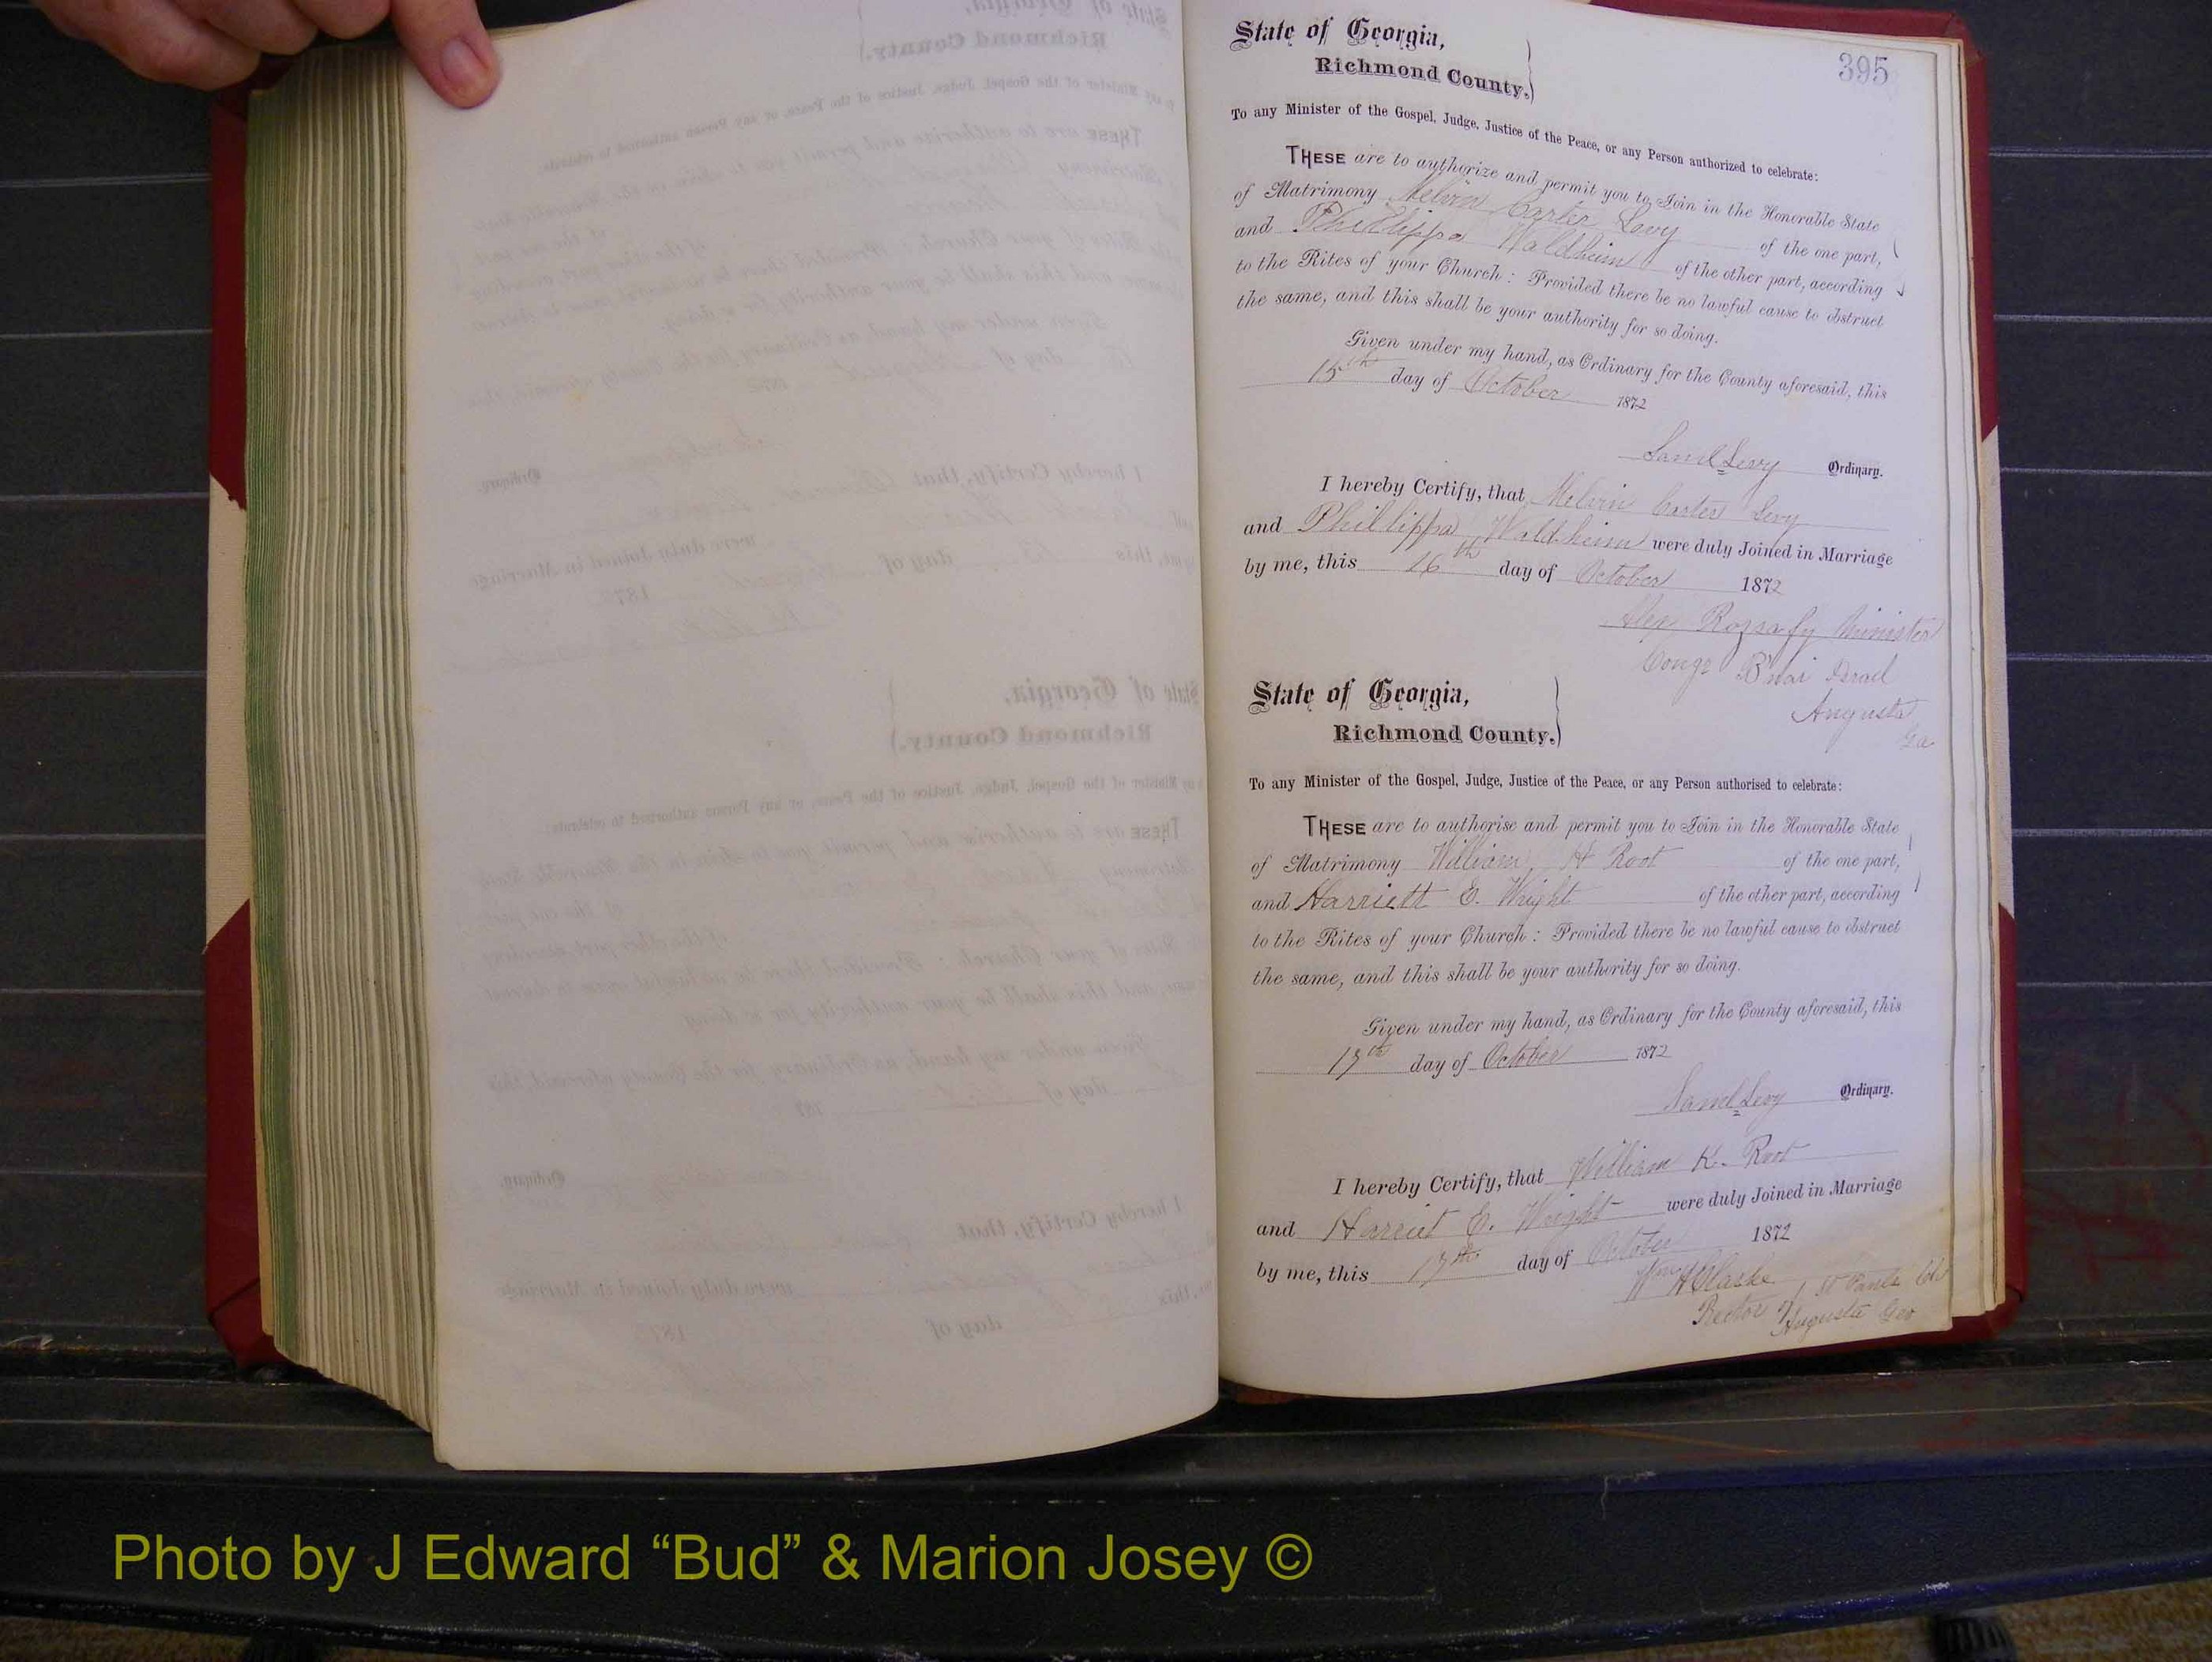 395
State of Georgia,
Richmond County.
To any Minister of the Gospel, Judge, Justice of the Peace, or any Person authorized to celebrate:
THESE are to authorize and permit you to Join in the Honorable State
of Matrimony Melvin Carter Levy of the one part,
and Phillippa Waldheim of the other part, according
to the Rites of your Church: Provided there be no lawful cause to obstruct
the same, and this shall be your authority for so doing.
Given under my hand, as Ordinary for the County aforesaid, this
15th day of October 1872
Saml Levy Ordinary.
I hereby Certify, that Melvin Carter Levy
and Phillippa Waldheim were duly Joined in Marriage
by me, this 16th day of October 1872
Rozsafy Minister
Congr B'nai Israel
Augusta
Ga
State of Georgia,
Richmond County.
To any Minister of the Gospel, Judge, Justice of the Peace, or any Person authorised to celebrate:
THESE are to authorise and permit you to Join in the Honorable State
of Matrimony William H Root of the one part,
and Harriett E. Wright of the other part, according
to the Rites of your Church: Provided there be no lawful cause to obstruct
the same, and this shall be your authority for so doing.
Given under my hand, as Ordinary for the County aforesaid, this
17th day of October 1872
Saml Levy Ordinary.
I hereby Certify, that William K. Root
and Harriet E. Wright were duly Joined in Marriage
by me, this 17th day of October 1872
Wm H Clarke
Rector of St Pauls Ch
Augusta Geo
Photo by J Edward “Bud” & Marion Josey ©